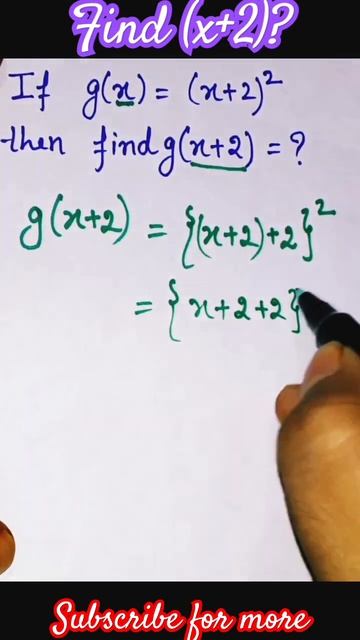 Find (x+2)?
If g(x) = (x+2)²
then find g(x+2) = ?
g(x+2) = {(x+2)+2}²
= { x+2+2}
Subscribe for more